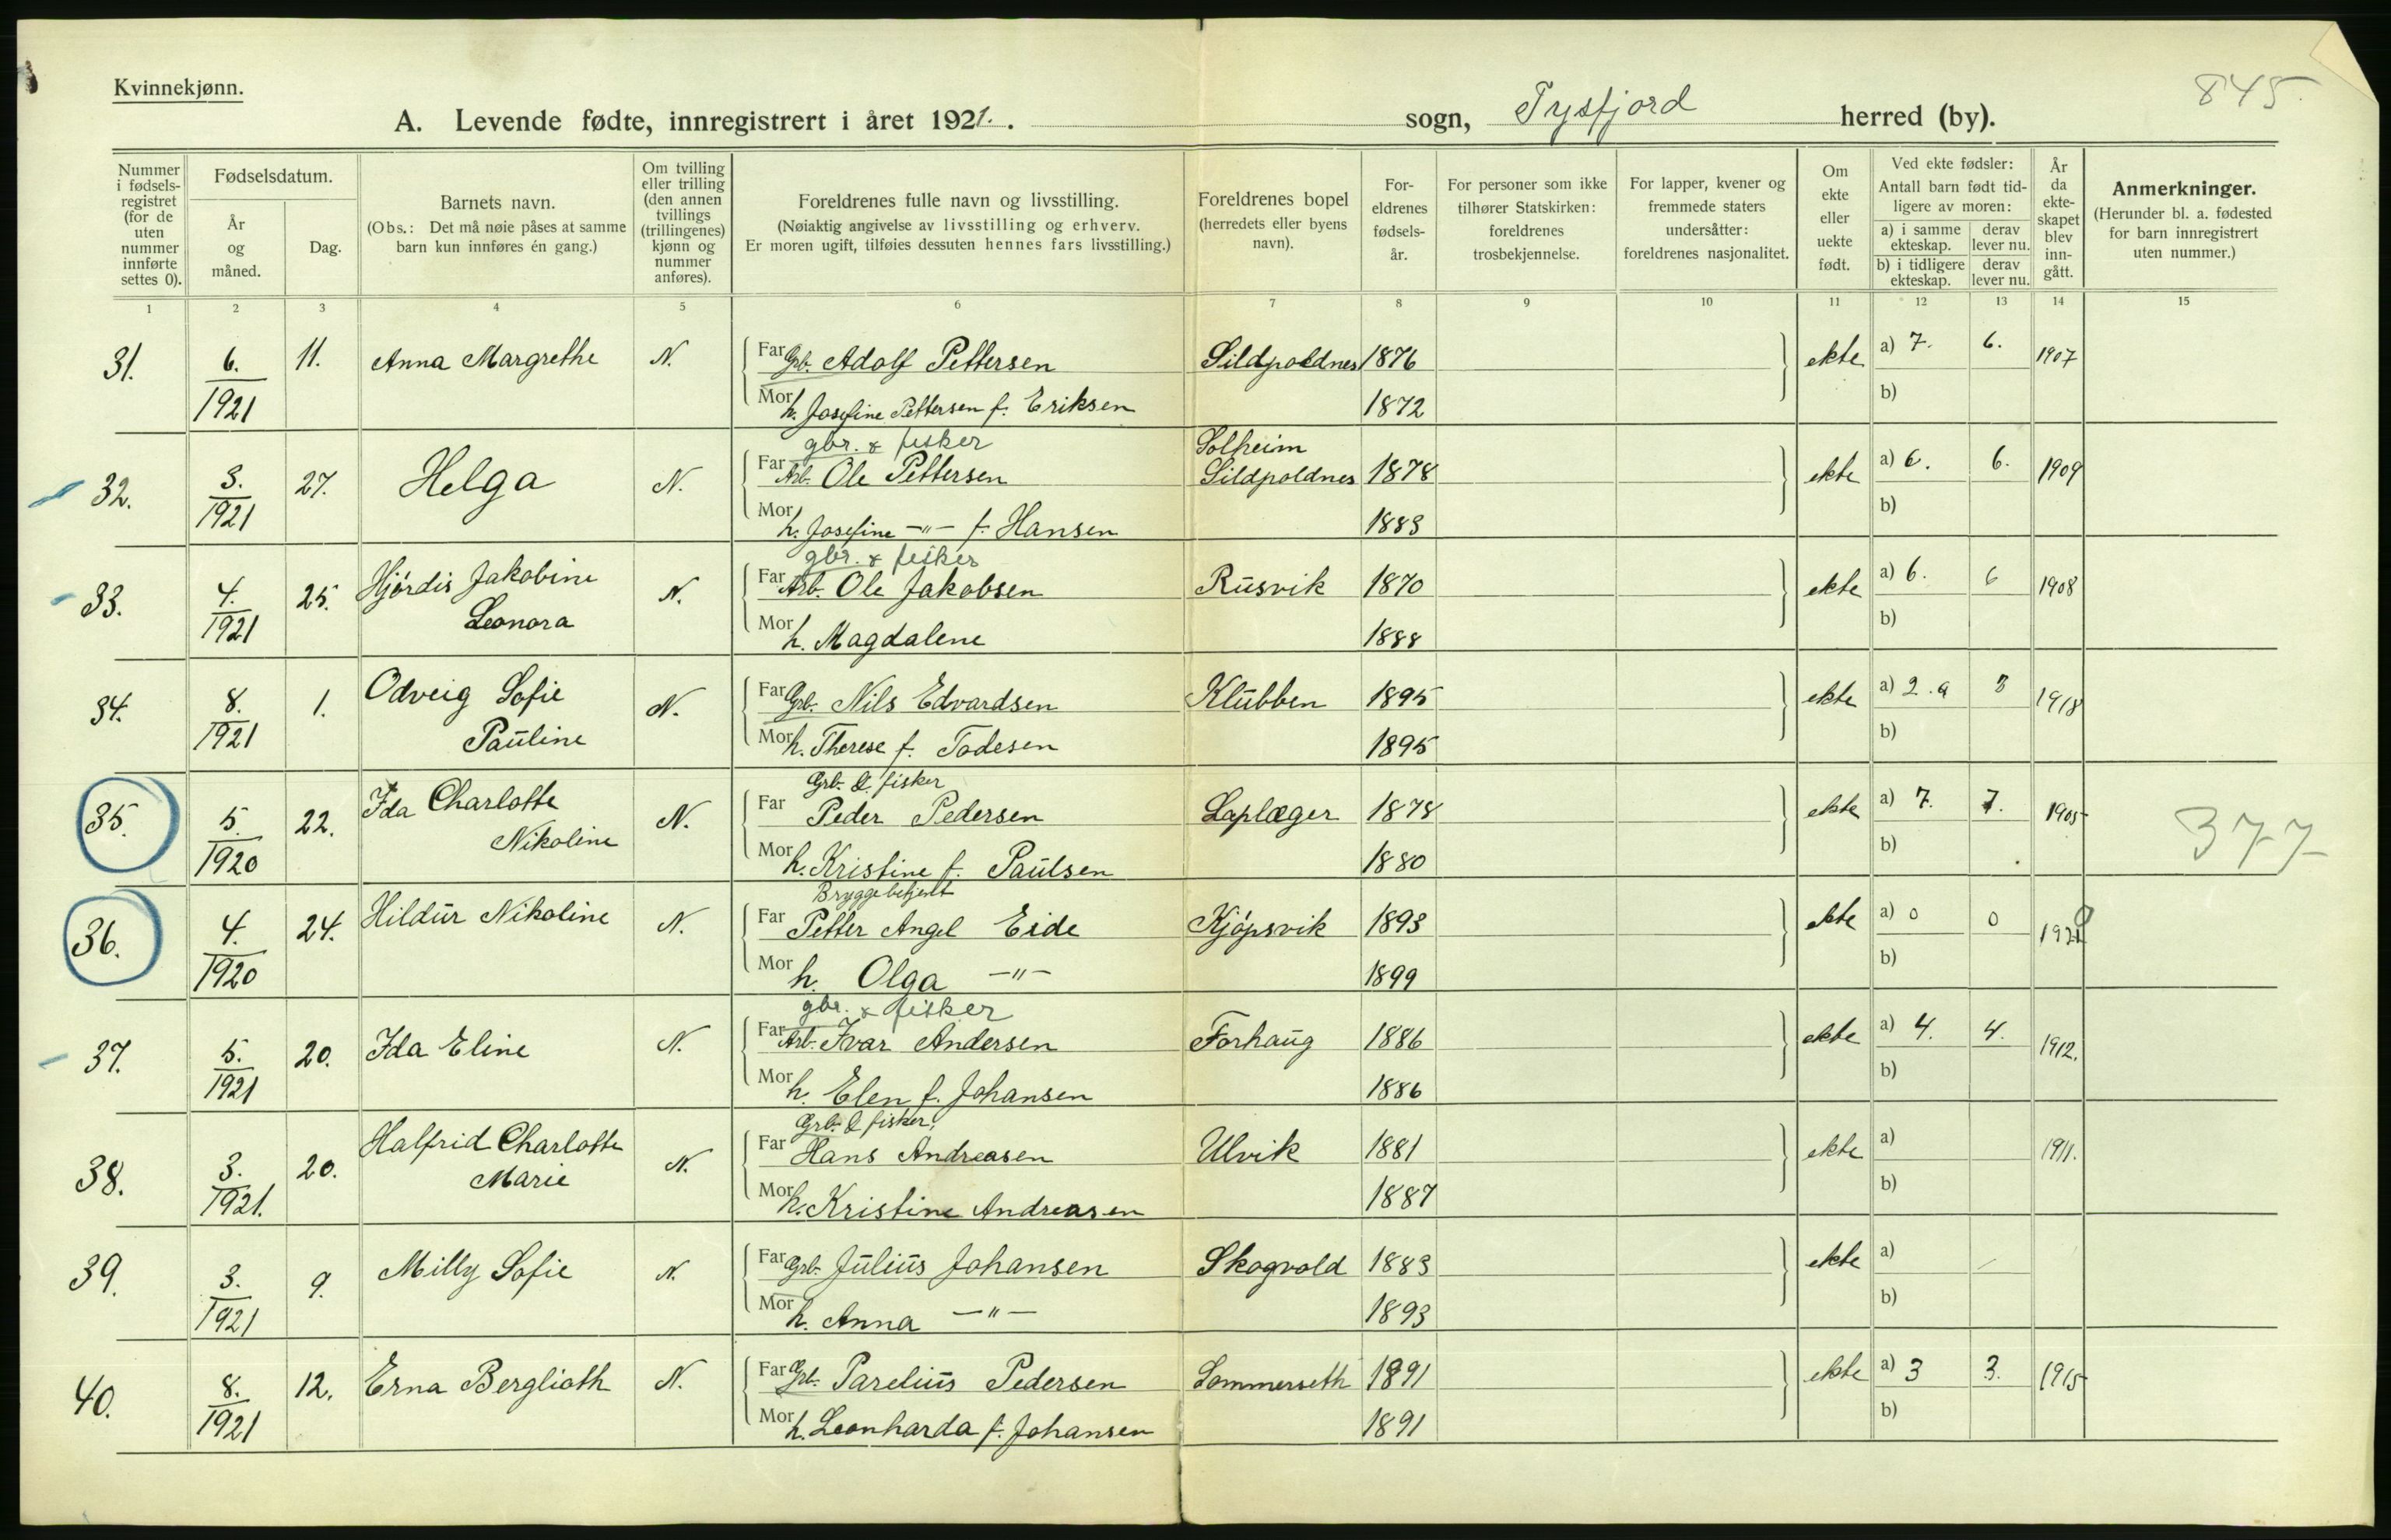 Kvinnekjønn.
845.
A. Levende fødte, innregistrert i året 1921. . sogn, Tysfjord herred (by).
Nummer i fødsels-registret (for de uten nummer innførte settes 0).
Fødselsdatum.
År og måned.
Dag.
Barnets navn.
(Obs.: Det må nøie påses at samme barn kun innføres én gang.)
Om tvilling eller trilling (den annen tvillings (trillingenes) kjønn og nummer anføres).
Foreldrenes fulle navn og livsstilling.
(Nøiaktig angivelse av livsstilling og erhverv.
Er moren ugift, tilføies dessuten hennes fars livsstilling.)
Foreldrenes bopel (herredets eller byens navn).
For-eldrenes fødsels-år.
For personer som ikke tilhører Statskirken: foreldrenes trosbekjennelse.
For lapper, kvener og fremmede staters undersåtter: foreldrenes nasjonalitet.
Om ekte eller uekte født.
Ved ekte fødsler:
Antall barn født tid-ligere av moren:
a) i samme ekteskap. derav lever nu.
b) i tidligere ekteskap. derav lever nu.
År da ekte-skapet blev inn-gått.
Anmerkninger.
(Herunder bl. a. fødested for barn innregistrert uten nummer.)
1 2 3 4 5 6 7 8 9 10 11 12 13 14 15
31. 6. 11. Anna Margrethe N. Far Grb. Adolf Pettersen Sildpoldnes 1876 ekte a) 7. 6. 1907
1921 Mor h. Josefine Pettersen f. Eriksen 1872 b)
gbr. & fisker Solheim
32. 3. 27. Helga N. Far Arb. Ole Pettersen Sildpoldnes 1878 ekte a) 6. 6. 1909
1921 Mor h. Josefine -"- f. Hansen 1883 b)
gbr. & fisker
33. 4. 25. Hjørdis Jakobine N. Far Arb. Ole Jakobsen Rusvik 1870 ekte a) 6. 6 1908
1921 Leonora Mor h. Magdalene 1888 b)
34. 8. 1. Odveig Sofie N. Far Grb. Nils Edvardsen Klubben 1895 ekte a) 2. a 3 1918
1921 Pauline Mor h. Therese f. Todesen 1895 b)
Grb. & fisker
35. 5. 22. Ida Charlotte N. Far Peder Pedersen Laplæger 1878 ekte a) 7. 7. 1905 377
1920 Nikoline Mor h. Kristine f. Paulsen 1880 b)
Bryggebetjent
36. 4. 24. Hildur Nikoline N. Far Petter Angel Eide Kjøpsvik 1893 ekte a) 0 0 1920
1920 Mor h. Olga -"- 1899 b)
gbr. & fisker
37. 5. 20. Ida Eline N. Far Arb. Ivar Andersen Forhaug 1886 ekte a) 4. 4. 1912.
1921 Mor h. Elen f. Johansen 1886 b)
Grb. & fisker.
38. 3. 20. Halfrid Charlotte N. Far Hans Andreasen Ulvik 1881 ekte a) 1911.
1921. Marie Mor h. Kristine Andreasen 1887 b)
39. 3. 9. Milly Sofie N. Far Grb. Julius Johansen Skogvold 1883 ekte a)
1921 Mor h. Anna -"- 1893 b)
40. 8. 12. Erna Berglioth N. Far Grb. Parelius Pedersen Sommerseth 1891 ekte a) 3 3. 1915
1921 Mor h. Leonharda f. Johansen 1891 b)